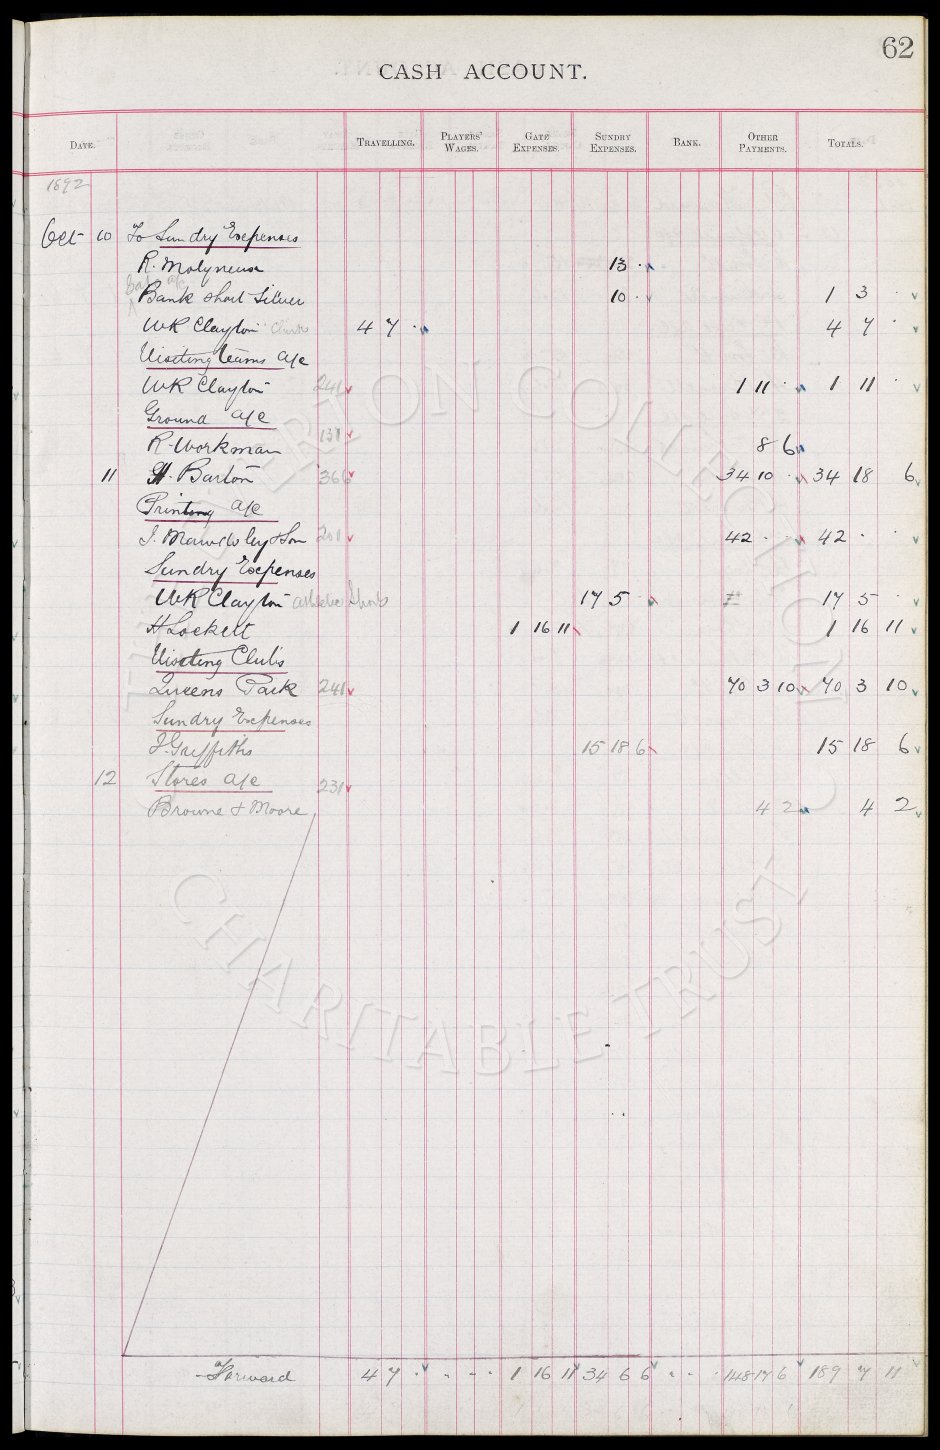 62
CASH ACCOUNT.
DATE. TRAVELLING. PLAYERS' WAGES. GATE EXPENSES. SUNDRY EXPENSES. BANK. OTHER PAYMENTS. TOTALS.
1892
Oct 10 To Sundry Expenses
R. Molyneux 13 .
Bank short Silver 10 . 1 3 .
WR Clayton 4 7 . 4 7 .
Visiting teams a/c
WR Clayton 241 1 11 . 1 11 .
Ground a/c
R. Workman 131 8 6
11 H. Barton 366 34 10 . 34 18 6
Printing a/c
J. Mawdsley & Son 201 42 . . 42 . .
Sundry Expenses
WR Clayton athletic Sports 17 5 . 17 5 .
H Lockett 1 16 11 1 16 11
Visiting Clubs
Queens Park 241 70 3 10 70 3 10
Sundry Expenses
J. Griffiths 15 18 6 15 18 6
12 Stores a/c 231
Browne & Moore 4 2 4 2
Forward 4 7 . - - - 1 16 11 34 6 6 - - . 148 17 6 189 7 11
EVERTON COLLECTION
CHARITABLE TRUST